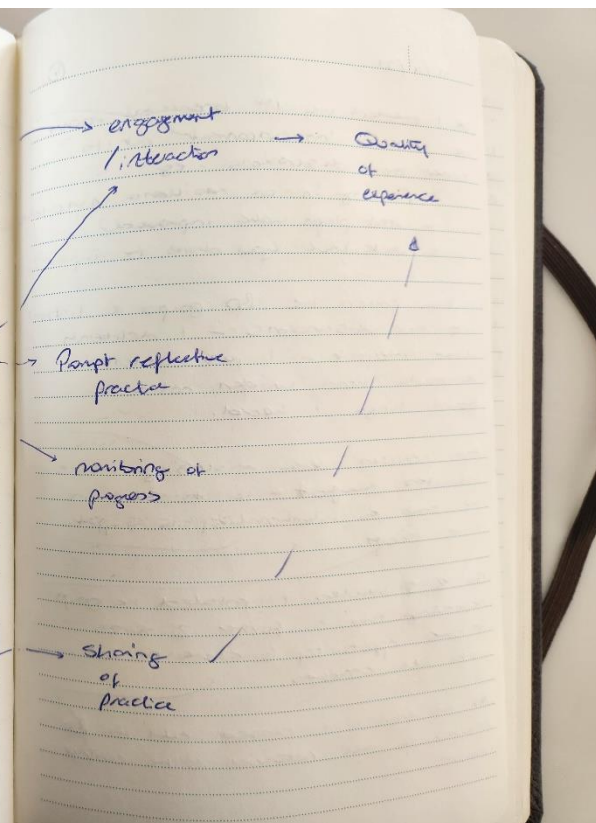 engagement
/interaction
Quality
of
experience
Prompt reflective
practice
monitoring of
progress
Sharing
of
practice